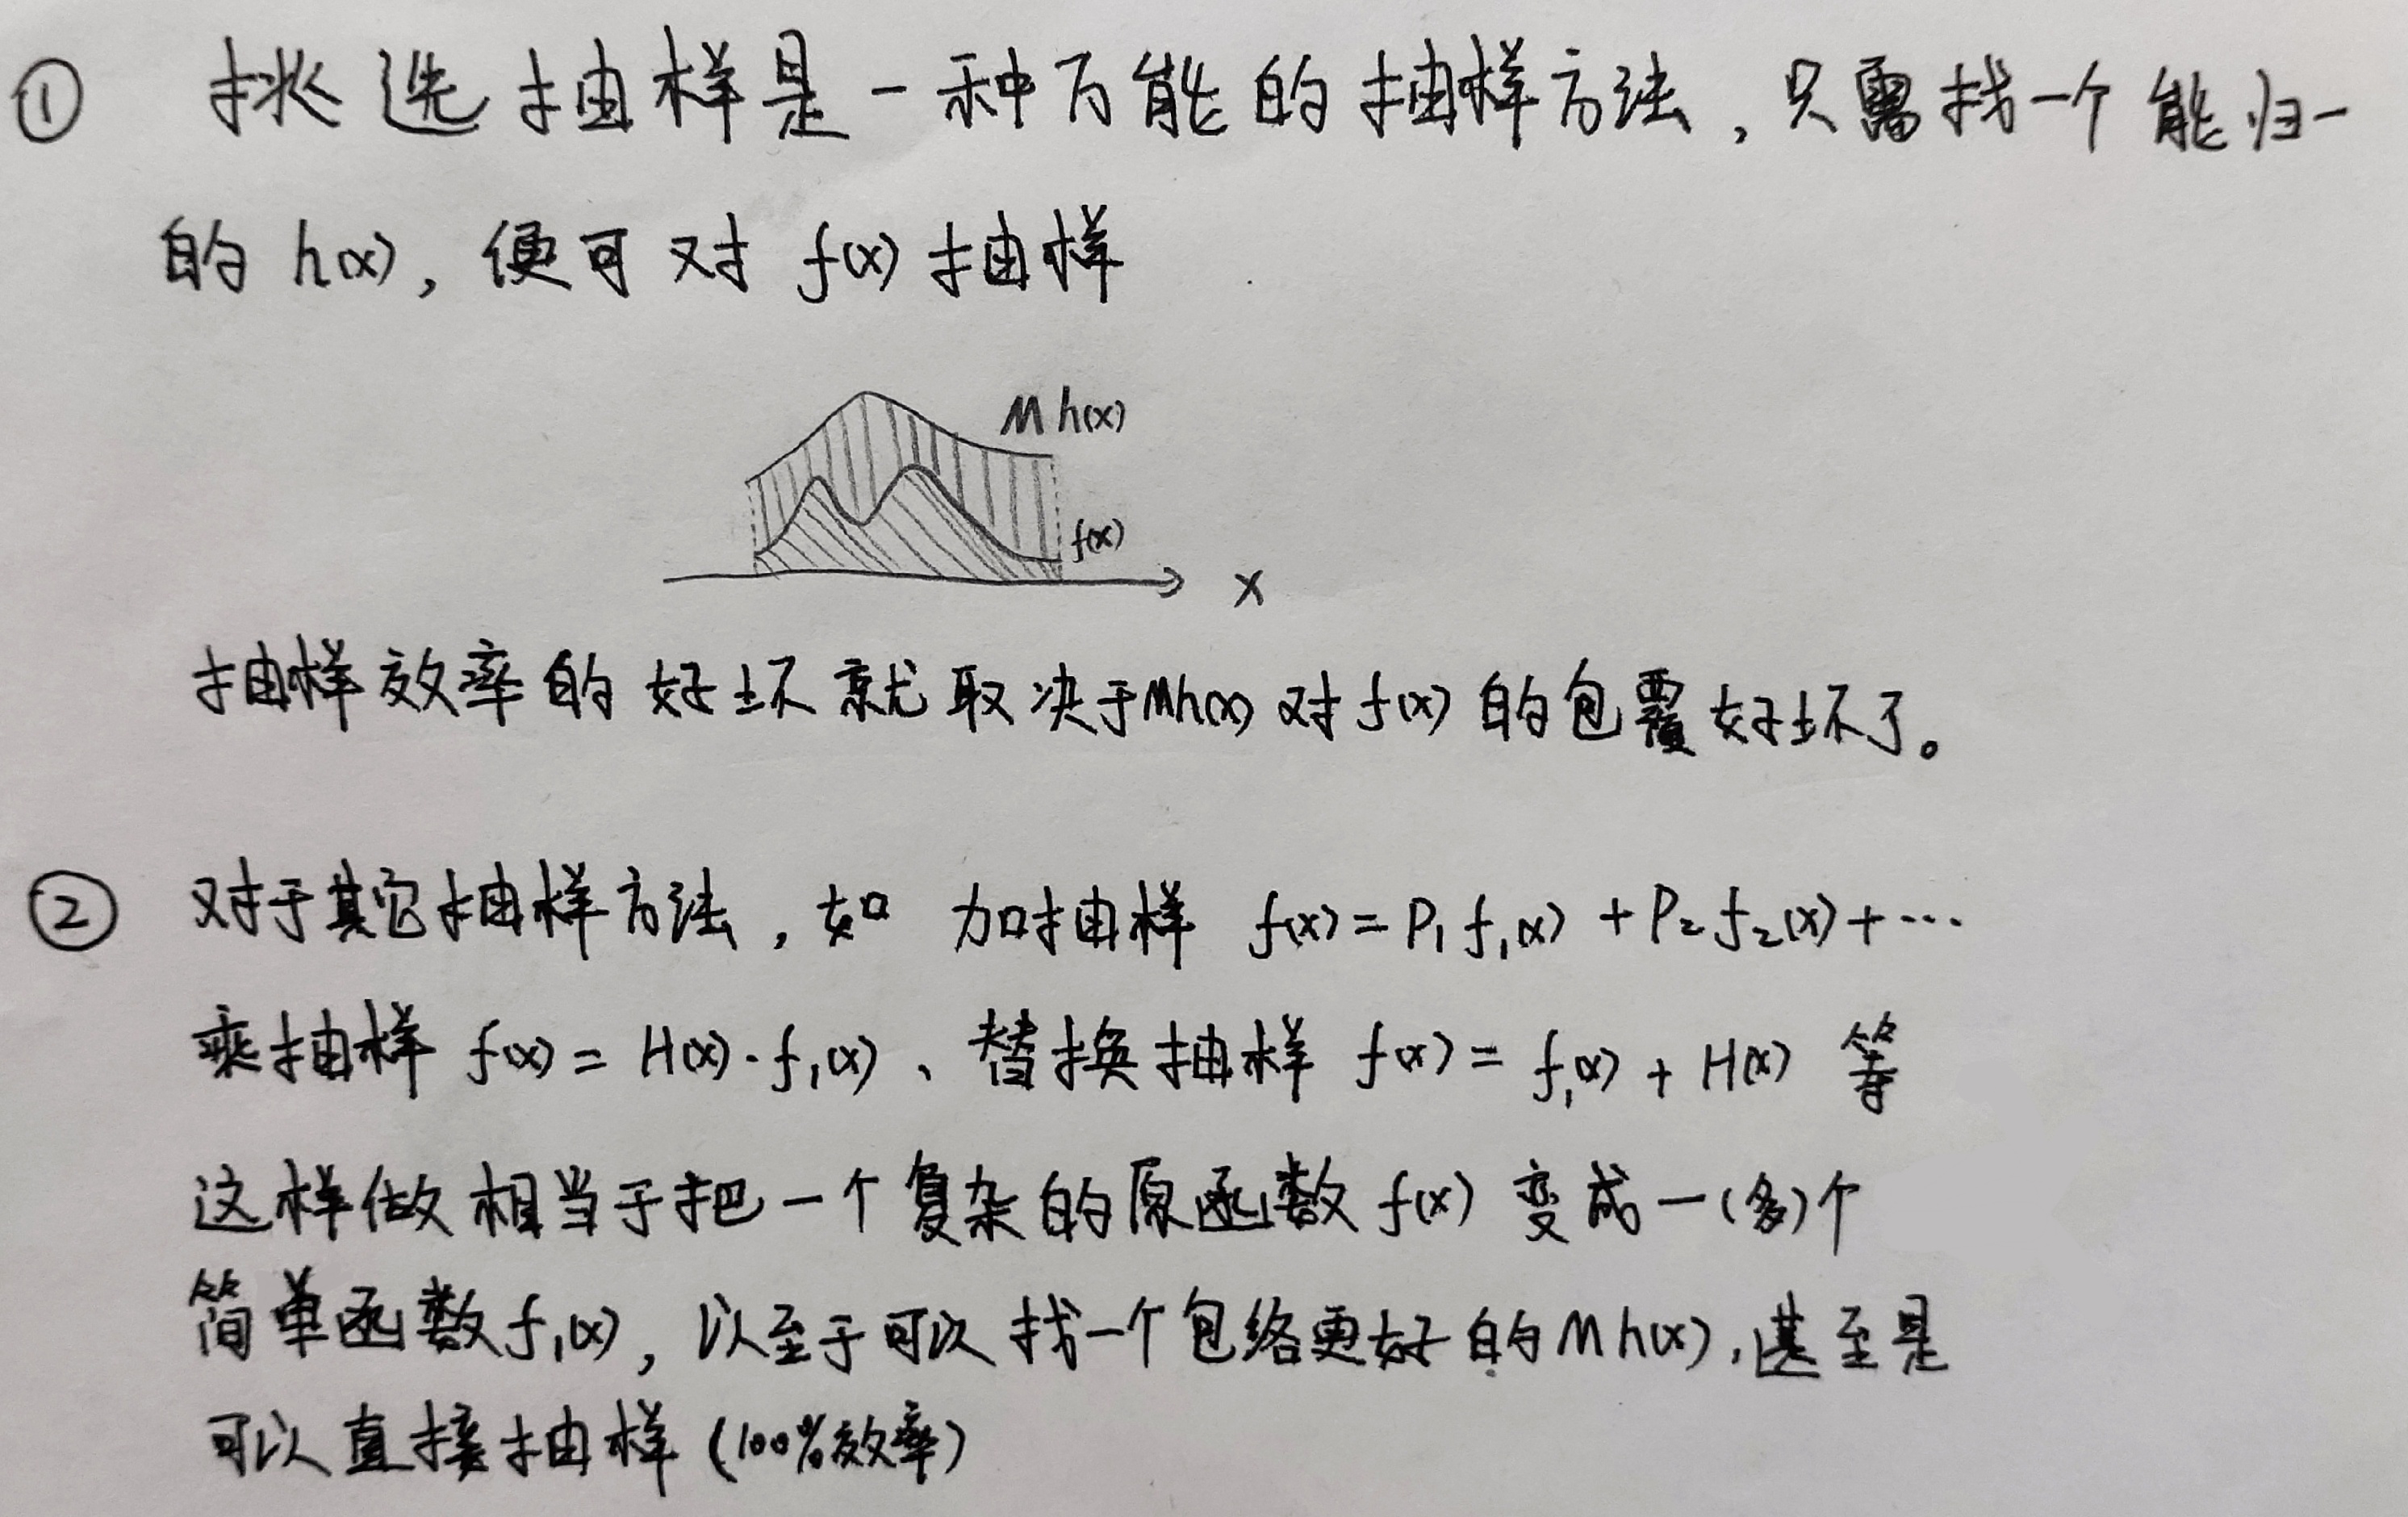 ① 挑选抽样是一种万能的抽样方法，只需找一个能归一
的 h(x)，便可对 f(x) 抽样
M h(x)
f(x)
x
抽样效率的好坏就取决于Mh(x)对f(x)的包覆好坏了。
② 对于其它抽样方法，如 加抽样 f(x) = P₁f₁(x) + P₂f₂(x) + ⋯
乘抽样 f(x) = H(x)·f₁(x)、替换抽样 f(x) = f₁(x) + H(x) 等
这样做相当于把一个复杂的原函数 f(x) 变成一(多)个
简单函数f₁(x)，以至于可以找一个包络更好的Mh(x)，甚至是
可以直接抽样（100%效率）